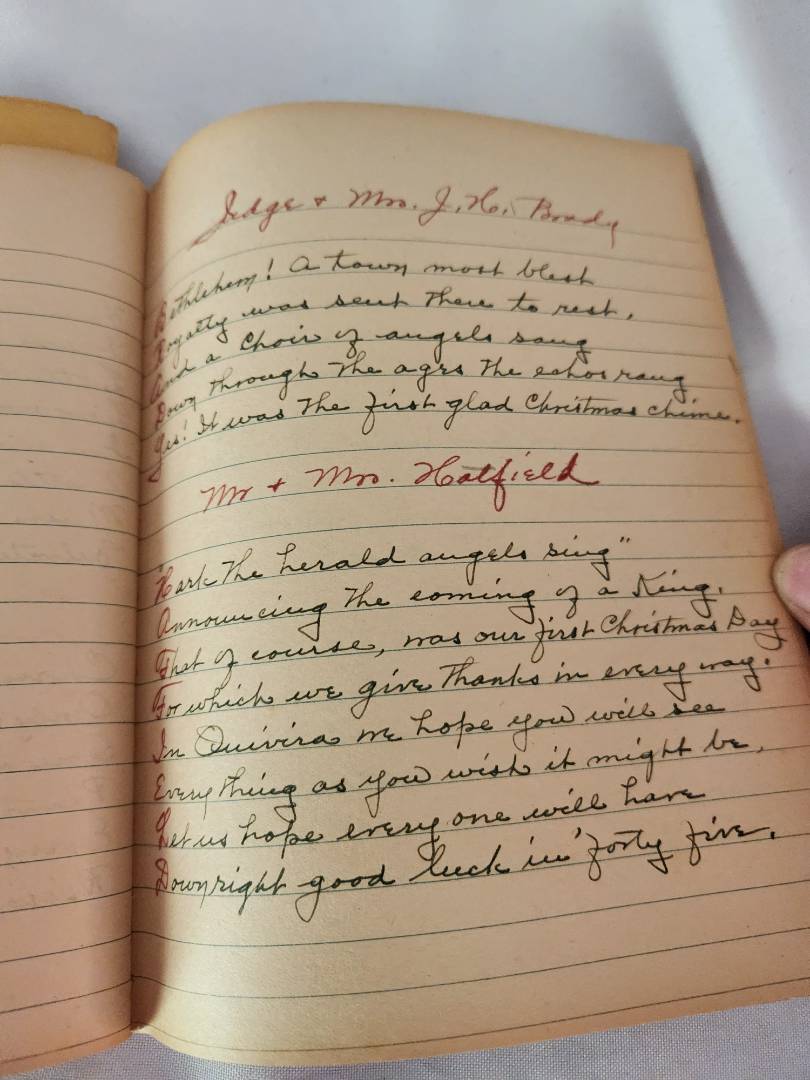 Judge + Mrs. J. H. Brady
Bethlehem! A town most blest
Royalty was sent there to rest,
And a Choir of angels sang
Down through the ages the echos rang
Yes! It was the first glad Christmas chime.
Mr + Mrs. Hatfield
"Hark the herald angels sing"
Announcing the coming of a King.
That of course, was our first Christmas Day
For which we give thanks in every way.
In Quivira we hope you will see
Everything as you wish it might be,
Let us hope every one will have
Downright good luck in' forty five.